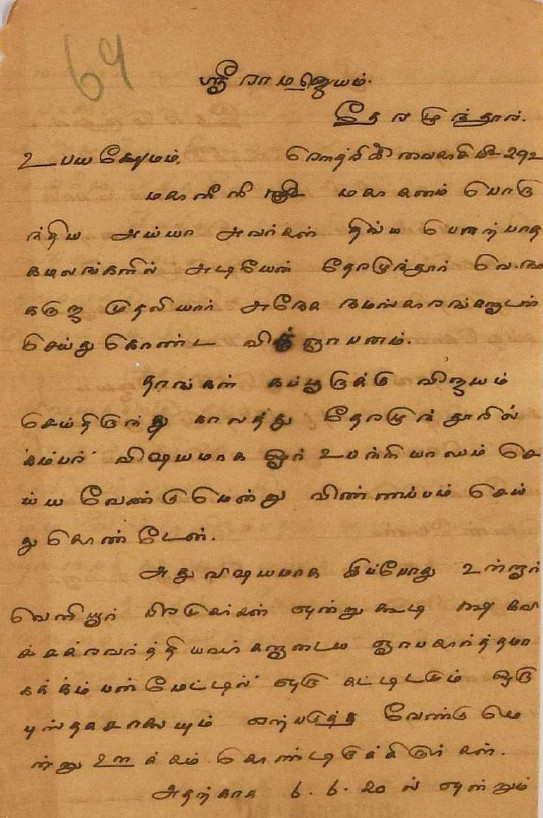 69
ஸ்ரீ ராமஜெயம்.
தேரழுந்தூர்.
உபயக்ஷேமம். ரௌத்திரி வைகாசி மீ 29உ
மகாஸ்ரீ மகாகனம் பொரு
ந்திய அய்யா அவர்கள் திவ்ய பொற்பாத
கமலங்களில் அடியேன் தேரழுந்தூர் வெ.நா
கராஜ முதலியார் அநேக நமஸ்காரங்களுடன்
செய்துகொண்ட விஞ்ஞாபனம்.
தாங்கள் விஜயம்
செய்திருந்த காலத்து தேரழுந்தூரில்
கம்பர் விஷயமாக ஓர் உபந்நியாஸம் செ
ய்ய வேண்டுமென்று விண்ணப்பம் செய்
து கொண்டேன்.
அது விஷயமாக இப்போது உள்ளூர்
வெளியூர் பிரபுகர்கள் ஒன்று கூடி கவி
ச்சக்ரவர்த்தியவர்களுடைய ஞாபகார்த்தமா
கக் கம்பன் மேட்டில் ஒரு கட்டிடமும் ஒரு
புஸ்தகசாலையும் ஏற்படுத்த வேண்டுமெ
ன்று ஊக்கம் கொண்டிருக்கிறார்கள்.
அதற்காக 6.6.20 ல் ஒன்றும்